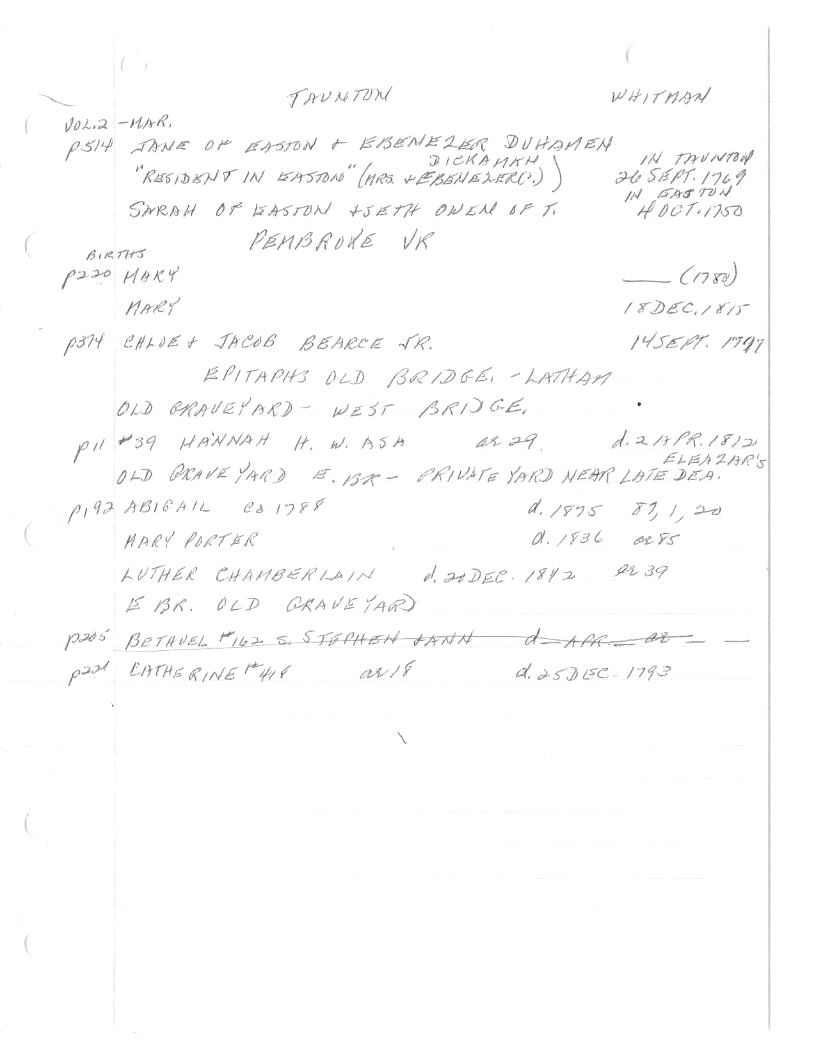 TAUNTON WHITMAN
VOL.2 - MAR.
p514 JANE OF EASTON + EBENEZER DUHAMEN
DICKAMAH IN TAUNTON
"RESIDENT IN EASTON" (MRS. + EBENEZER(?)) 26 SEPT. 1769
IN EASTON
SARAH OF EASTON + SETH OWEN OF T. 4 OCT. 1750
PEMBROKE VR
BIRTHS
p220 MARY —— (1780)
MARY 18 DEC. 1815
p374 CHLOE + JACOB BEARCE JR. 14 SEPT. 1797
EPITAPHS OLD BRIDGE. - LATHAM
OLD GRAVEYARD - WEST BRIDGE.
p11 #39 HANNAH H. W. ASA ae 29 d. 2 APR. 1812
ELEAZAR'S
OLD GRAVEYARD E. BR - PRIVATE YARD NEAR LATE DEA.
p192 ABIGAIL 1788 d. 1875 87, 1, 20
MARY PORTER d. 1836 ae 85
LUTHER CHAMBERLAIN d. 20 DEC. 1842 ae 39
E BR. OLD GRAVEYARD
p205 BETHUEL #162 S. STEPHEN + ANN d — APR — ae — —
p221 CATHERINE #418 ae 18 d. 25 DEC. 1793